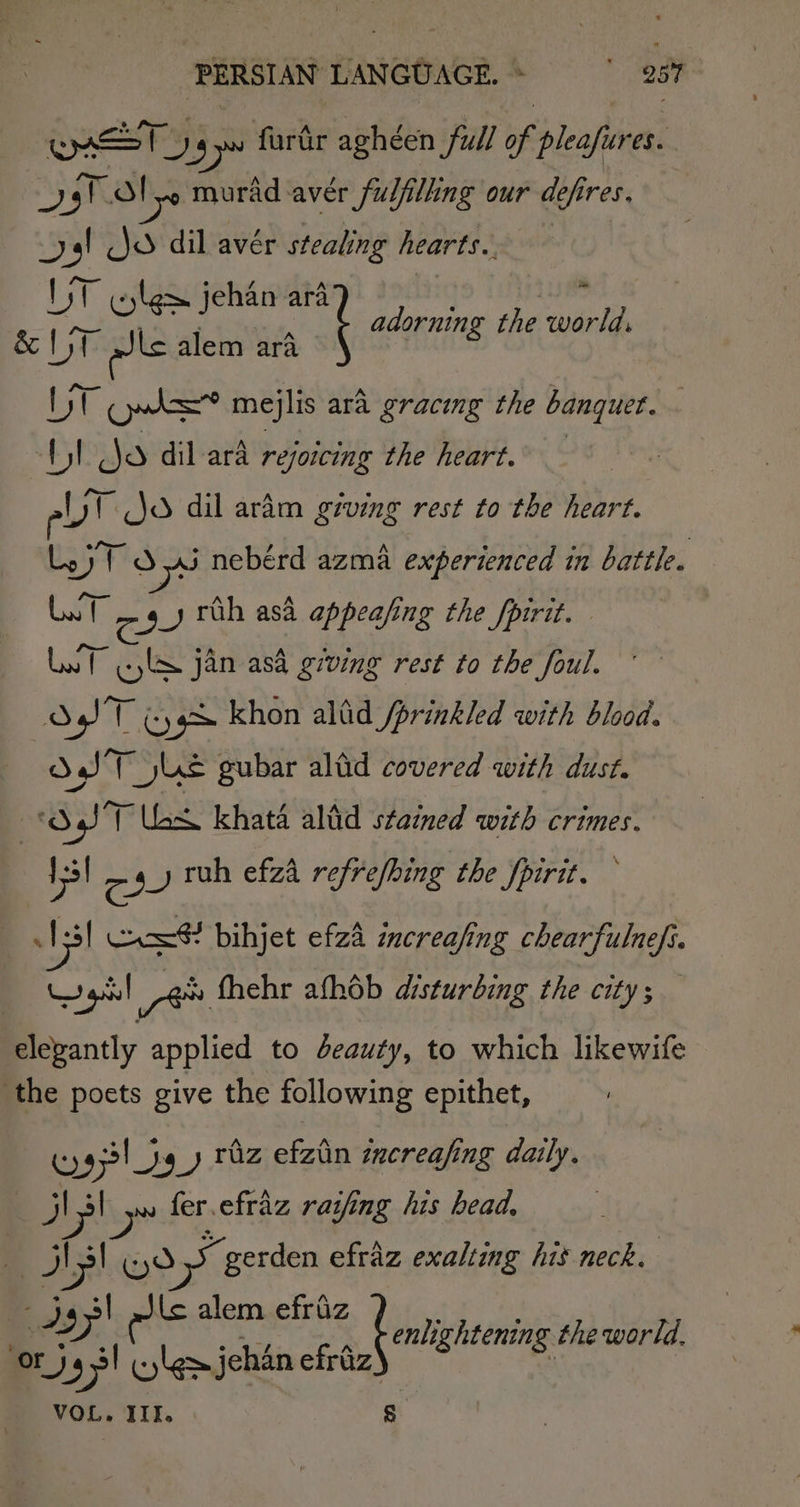 PERSIAN LANGUAGE. 257
سرور آگین furûr aghéen full of pleaſures.
مراد آور murâd avér fulfilling our deſires.
دل اور dil avér stealing hearts.
جهان آرا jehán arâ } adorning the world.
& عالم آرا alem arâ
مجلس آرا mejlis arâ gracing the banquet.
دل ارا dil arâ rejoicing the heart.
دل آرام dil arâm giving rest to the heart.
نبرد آزما nebérd azmâ experienced in battle.
روح آسا rûh asâ appeaſing the ſpirit.
جان آسا jân asâ giving rest to the ſoul.
خون آلود khon alûd ſprinkled with blood.
غبار آلود gubar alûd covered with dust.
خطا آلود khatá alûd stained with crimes.
روح افزا ruh efzâ refreſhing the ſpirit.
بهجت افزا bihjet efzâ increaſing chearfulneſs.
شهر اشوب ſhehr aſhôb disturbing the city;
elegantly applied to beauty, to which likewiſe
the poets give the following epithet,
روز افزون rûz efzûn increaſing daily.
سر افراز ſer efrâz raiſing his head.
گردن افراز gerden efrâz exalting his neck.
عالم افروز alem efrûz } enlightening the world.
or جهان افروز jehán efrûz
VOL. III. S